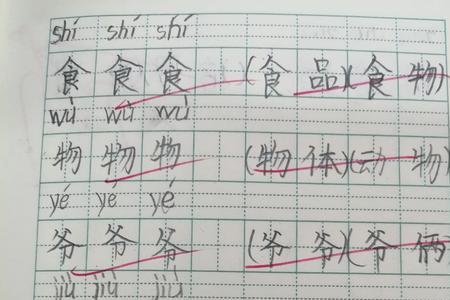 shí shí shí
食 食 食 (食 品)(食 物)
wù wù wù
物 物 物 (物 体)(动 物)
yé yé yé
爷 爷 爷 (爷 爷)(爷 俩
jiù jiù jiù